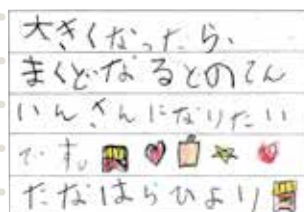 大きくなったら、
まくどなるどのてん
いんさんになりたい
です。
たなはらひより